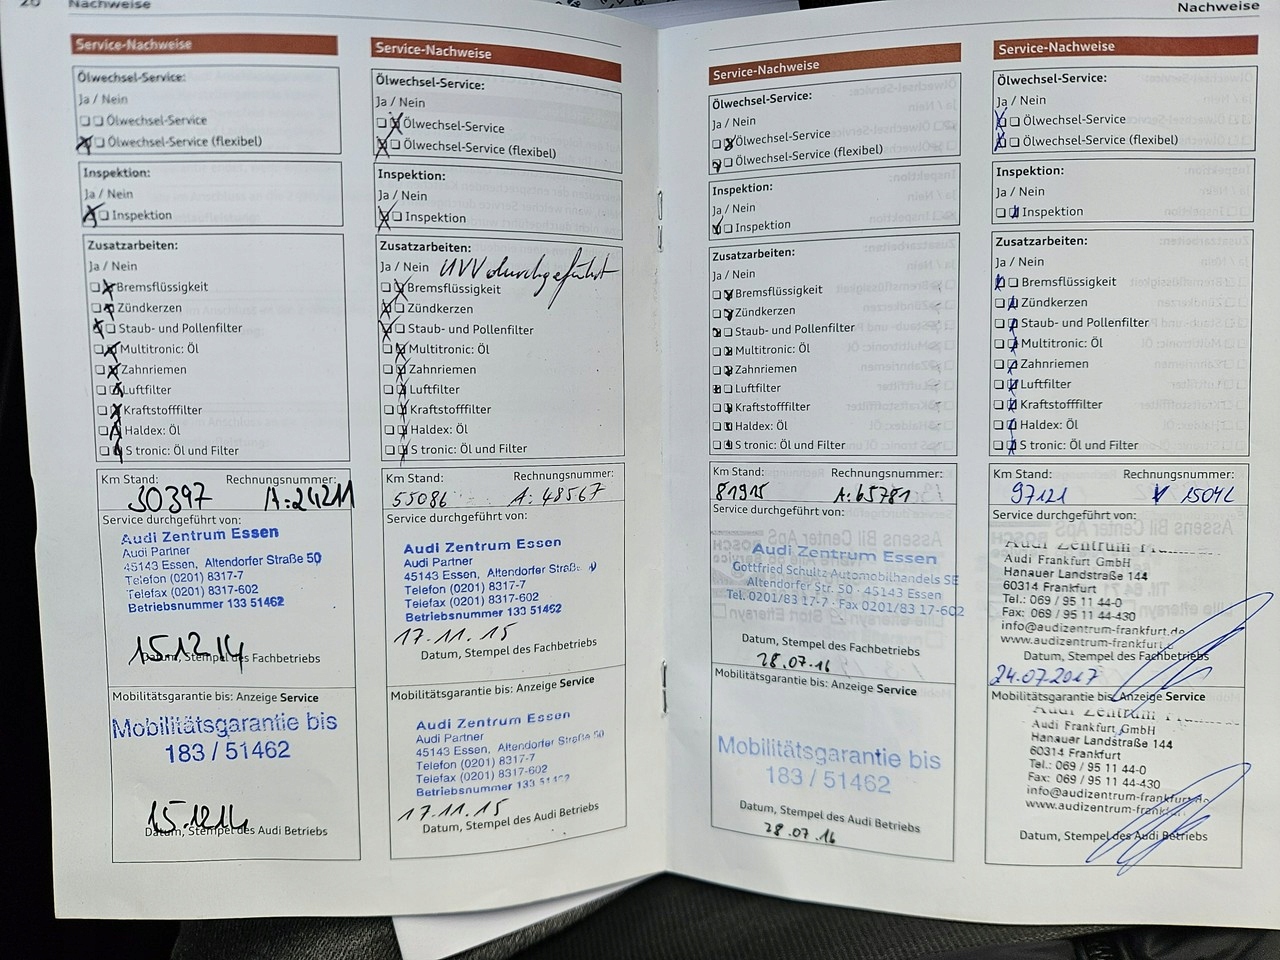 Nachweise
Service-Nachweise
Ölwechsel-Service:
Ja / Nein
Ölwechsel-Service
Ölwechsel-Service (flexibel)
Inspektion:
Ja / Nein
Inspektion
Zusatzarbeiten:
Ja / Nein
Bremsflüssigkeit
Zündkerzen
Staub- und Pollenfilter
Multitronic: Öl
Zahnriemen
Luftfilter
Kraftstofffilter
Haldex: Öl
S tronic: Öl und Filter
Km Stand: Rechnungsnummer:
30397 A:24211
Service durchgeführt von:
Audi Zentrum Essen
Audi Partner
45143 Essen, Altendorfer Straße 50
Telefon (0201) 8317-7
Telefax (0201) 8317-602
Betriebsnummer 133 51462
15.12.14
Datum, Stempel des Fachbetriebs
Mobilitätsgarantie bis: Anzeige Service
Mobilitätsgarantie bis
183 / 51462
15.12.14
Datum, Stempel des Audi Betriebs
Service-Nachweise
Ölwechsel-Service:
Ja / Nein
Ölwechsel-Service
Ölwechsel-Service (flexibel)
Inspektion:
Ja / Nein
Inspektion
Zusatzarbeiten:
Ja / Nein UVV durchgeführt
Bremsflüssigkeit
Zündkerzen
Staub- und Pollenfilter
Multitronic: Öl
Zahnriemen
Luftfilter
Kraftstofffilter
Haldex: Öl
S tronic: Öl und Filter
Km Stand: Rechnungsnummer:
55086 A: 48567
Service durchgeführt von:
Audi Zentrum Essen
Audi Partner
45143 Essen, Altendorfer Straße
Telefon (0201) 8317-7
Telefax (0201) 8317-602
Betriebsnummer 133 51462
17.11.15
Datum, Stempel des Fachbetriebs
Mobilitätsgarantie bis: Anzeige Service
Audi Zentrum Essen
Audi Partner
45143 Essen, Altendorfer Straße 50
Telefon (0201) 8317-7
Telefax (0201) 8317-602
Betriebsnummer 133
17.11.15
Datum, Stempel des Audi Betriebs
Nachweise
Service-Nachweise
Ölwechsel-Service:
Ja / Nein
Ölwechsel-Service
Ölwechsel-Service (flexibel)
Inspektion:
Ja / Nein
Inspektion
Zusatzarbeiten:
Ja / Nein
Bremsflüssigkeit
Zündkerzen
Staub- und Pollenfilter
Multitronic: Öl
Zahnriemen
Luftfilter
Kraftstofffilter
Haldex: Öl
S tronic: Öl und Filter
Km Stand: Rechnungsnummer:
81915 A: 65781
Service durchgeführt von:
Audi Zentrum Essen
Gottfried Schultz Automobilhandels SE
Altendorfer Str. 50 · 45143 Essen
Tel. 0201/83 17-7 · Fax 0201/83 17-602
Datum, Stempel des Fachbetriebs
28.07.16
Mobilitätsgarantie bis: Anzeige Service
Mobilitätsgarantie bis
183 / 51462
Datum, Stempel des Audi Betriebs
28.07.16
Service-Nachweise
Ölwechsel-Service:
Ja / Nein
Ölwechsel-Service
Ölwechsel-Service (flexibel)
Inspektion:
Ja / Nein
Inspektion
Zusatzarbeiten:
Ja / Nein
Bremsflüssigkeit
Zündkerzen
Staub- und Pollenfilter
Multitronic: Öl
Zahnriemen
Luftfilter
Kraftstofffilter
Haldex: Öl
S tronic: Öl und Filter
Km Stand: Rechnungsnummer:
97121
Service durchgeführt von:
Audi Zentrum
Audi Frankfurt GmbH
Hanauer Landstraße 144
60314 Frankfurt
Tel.: 069 / 95 11 44-0
Fax: 069 / 95 11 44-430
info@audizentrum-frankfurt.de
www.audizentrum-frankfurt.
Datum, Stempel des Fachbetriebs
24.07.2017
Mobilitätsgarantie bis: Anzeige Service
Audi Zentrum
Audi Frankfurt GmbH
Hanauer Landstraße 144
60314 Frankfurt
Tel.: 069 / 95 11 44-0
Fax: 069 / 95 11 44-430
info@audizentrum-frankfurt.de
www.audizentrum-frankfurt.
Datum, Stempel des Audi Betriebs